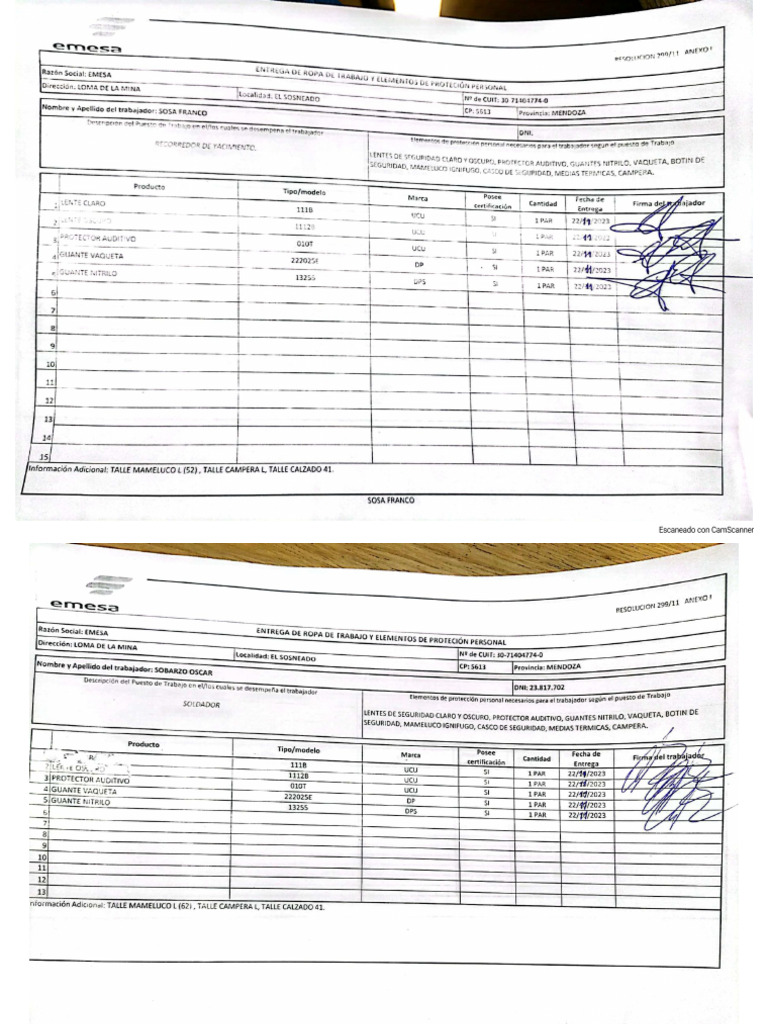 emesa
RESOLUCION 299/11 ANEXO I
ENTREGA DE ROPA DE TRABAJO Y ELEMENTOS DE PROTECIÓN PERSONAL
Razón Social: EMESA
Dirección: LOMA DE LA MINA Localidad: EL SOSNEADO Nº de CUIT: 30-71404774-0
Nombre y Apellido del trabajador: SOSA FRANCO CP: 5613 Provincia: MENDOZA
Descripción del Puesto de Trabajo en el/los cuales se desempeña el trabajador DNI.
RECORREDOR DE YACIMIENTO. Elementos de protección personal necesarios para el trabajador según el puesto de Trabajo
LENTES DE SEGURIDAD CLARO Y OSCURO, PROTECTOR AUDITIVO, GUANTES NITRILO, VAQUETA, BOTIN DE
SEGURIDAD, MAMELUCO IGNIFUGO, CASCO DE SEGURIDAD, MEDIAS TERMICAS, CAMPERA.
Producto Tipo/modelo Marca Posee certificación Cantidad Fecha de Entrega Firma del trabajador
1 LENTE CLARO 111B UCU SI 1 PAR 22/11/2023
2 LENTE OSCURO 1112B UCU SI 1 PAR 22/11/2023
3 PROTECTOR AUDITIVO 010T UCU SI 1 PAR 22/11/2023
4 GUANTE VAQUETA 222025E DP SI 1 PAR 22/11/2023
5 GUANTE NITRILO 13255 DPS SI 1 PAR 22/11/2023
6
7
8
9
10
11
12
13
14
15
Información Adicional: TALLE MAMELUCO L (52) , TALLE CAMPERA L, TALLE CALZADO 41.
SOSA FRANCO
Escaneado con CamScanner
emesa
RESOLUCION 299/11 ANEXO I
ENTREGA DE ROPA DE TRABAJO Y ELEMENTOS DE PROTECIÓN PERSONAL
Razón Social: EMESA
Dirección: LOMA DE LA MINA Localidad: EL SOSNEADO Nº de CUIT: 30-71404774-0
Nombre y Apellido del trabajador: SOBARZO OSCAR CP: 5613 Provincia: MENDOZA
Descripción del Puesto de Trabajo en el/los cuales se desempeña el trabajador DNI: 23.817.702
SOLDADOR Elementos de protección personal necesarios para el trabajador según el puesto de Trabajo
LENTES DE SEGURIDAD CLARO Y OSCURO, PROTECTOR AUDITIVO, GUANTES NITRILO, VAQUETA, BOTIN DE
SEGURIDAD, MAMELUCO IGNIFUGO, CASCO DE SEGURIDAD, MEDIAS TERMICAS, CAMPERA.
Producto Tipo/modelo Marca Posee certificación Cantidad Fecha de Entrega Firma del trabajador
111B UCU SI 1 PAR 22/11/2023
1112B UCU SI 1 PAR 22/11/2023
3 PROTECTOR AUDITIVO 010T UCU SI 1 PAR 22/11/2023
4 GUANTE VAQUETA 222025E DP SI 1 PAR 22/11/2023
5 GUANTE NITRILO 13255 DPS SI 1 PAR 22/11/2023
6
7
8
9
10
11
12
13
nformación Adicional: TALLE MAMELUCO L (62) , TALLE CAMPERA L, TALLE CALZADO 41.